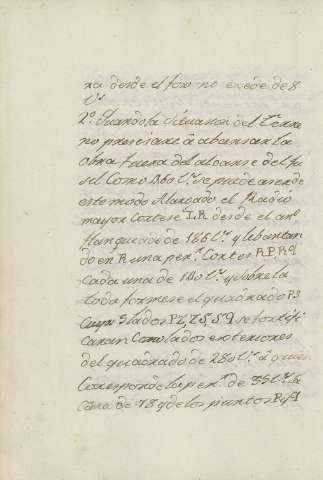 ra desde el foso no exede de 8
V.s
2.º Quando la situacion del Terre
no precisare à abansar la
obra fuera del alcanse del fu
sil Como 260 V.s se puede aser de
este modo Alargado el Radio
mayor Cortese I.R desde el an.º
flanqueado de 186 V.s y lebantan
do en R una per.r Cortes R.P, R.q
Cada una de 140 V.s y sobre la
toda formese el quadrado P.S
Cuyos lados PZ, Z.S, S.q se fortifi
caran Como lados exteriores
del quadrado de 280 V.s à quien
Corresponde la per.r de 35 V.s la
Cara de 78 y de los puntos P y q